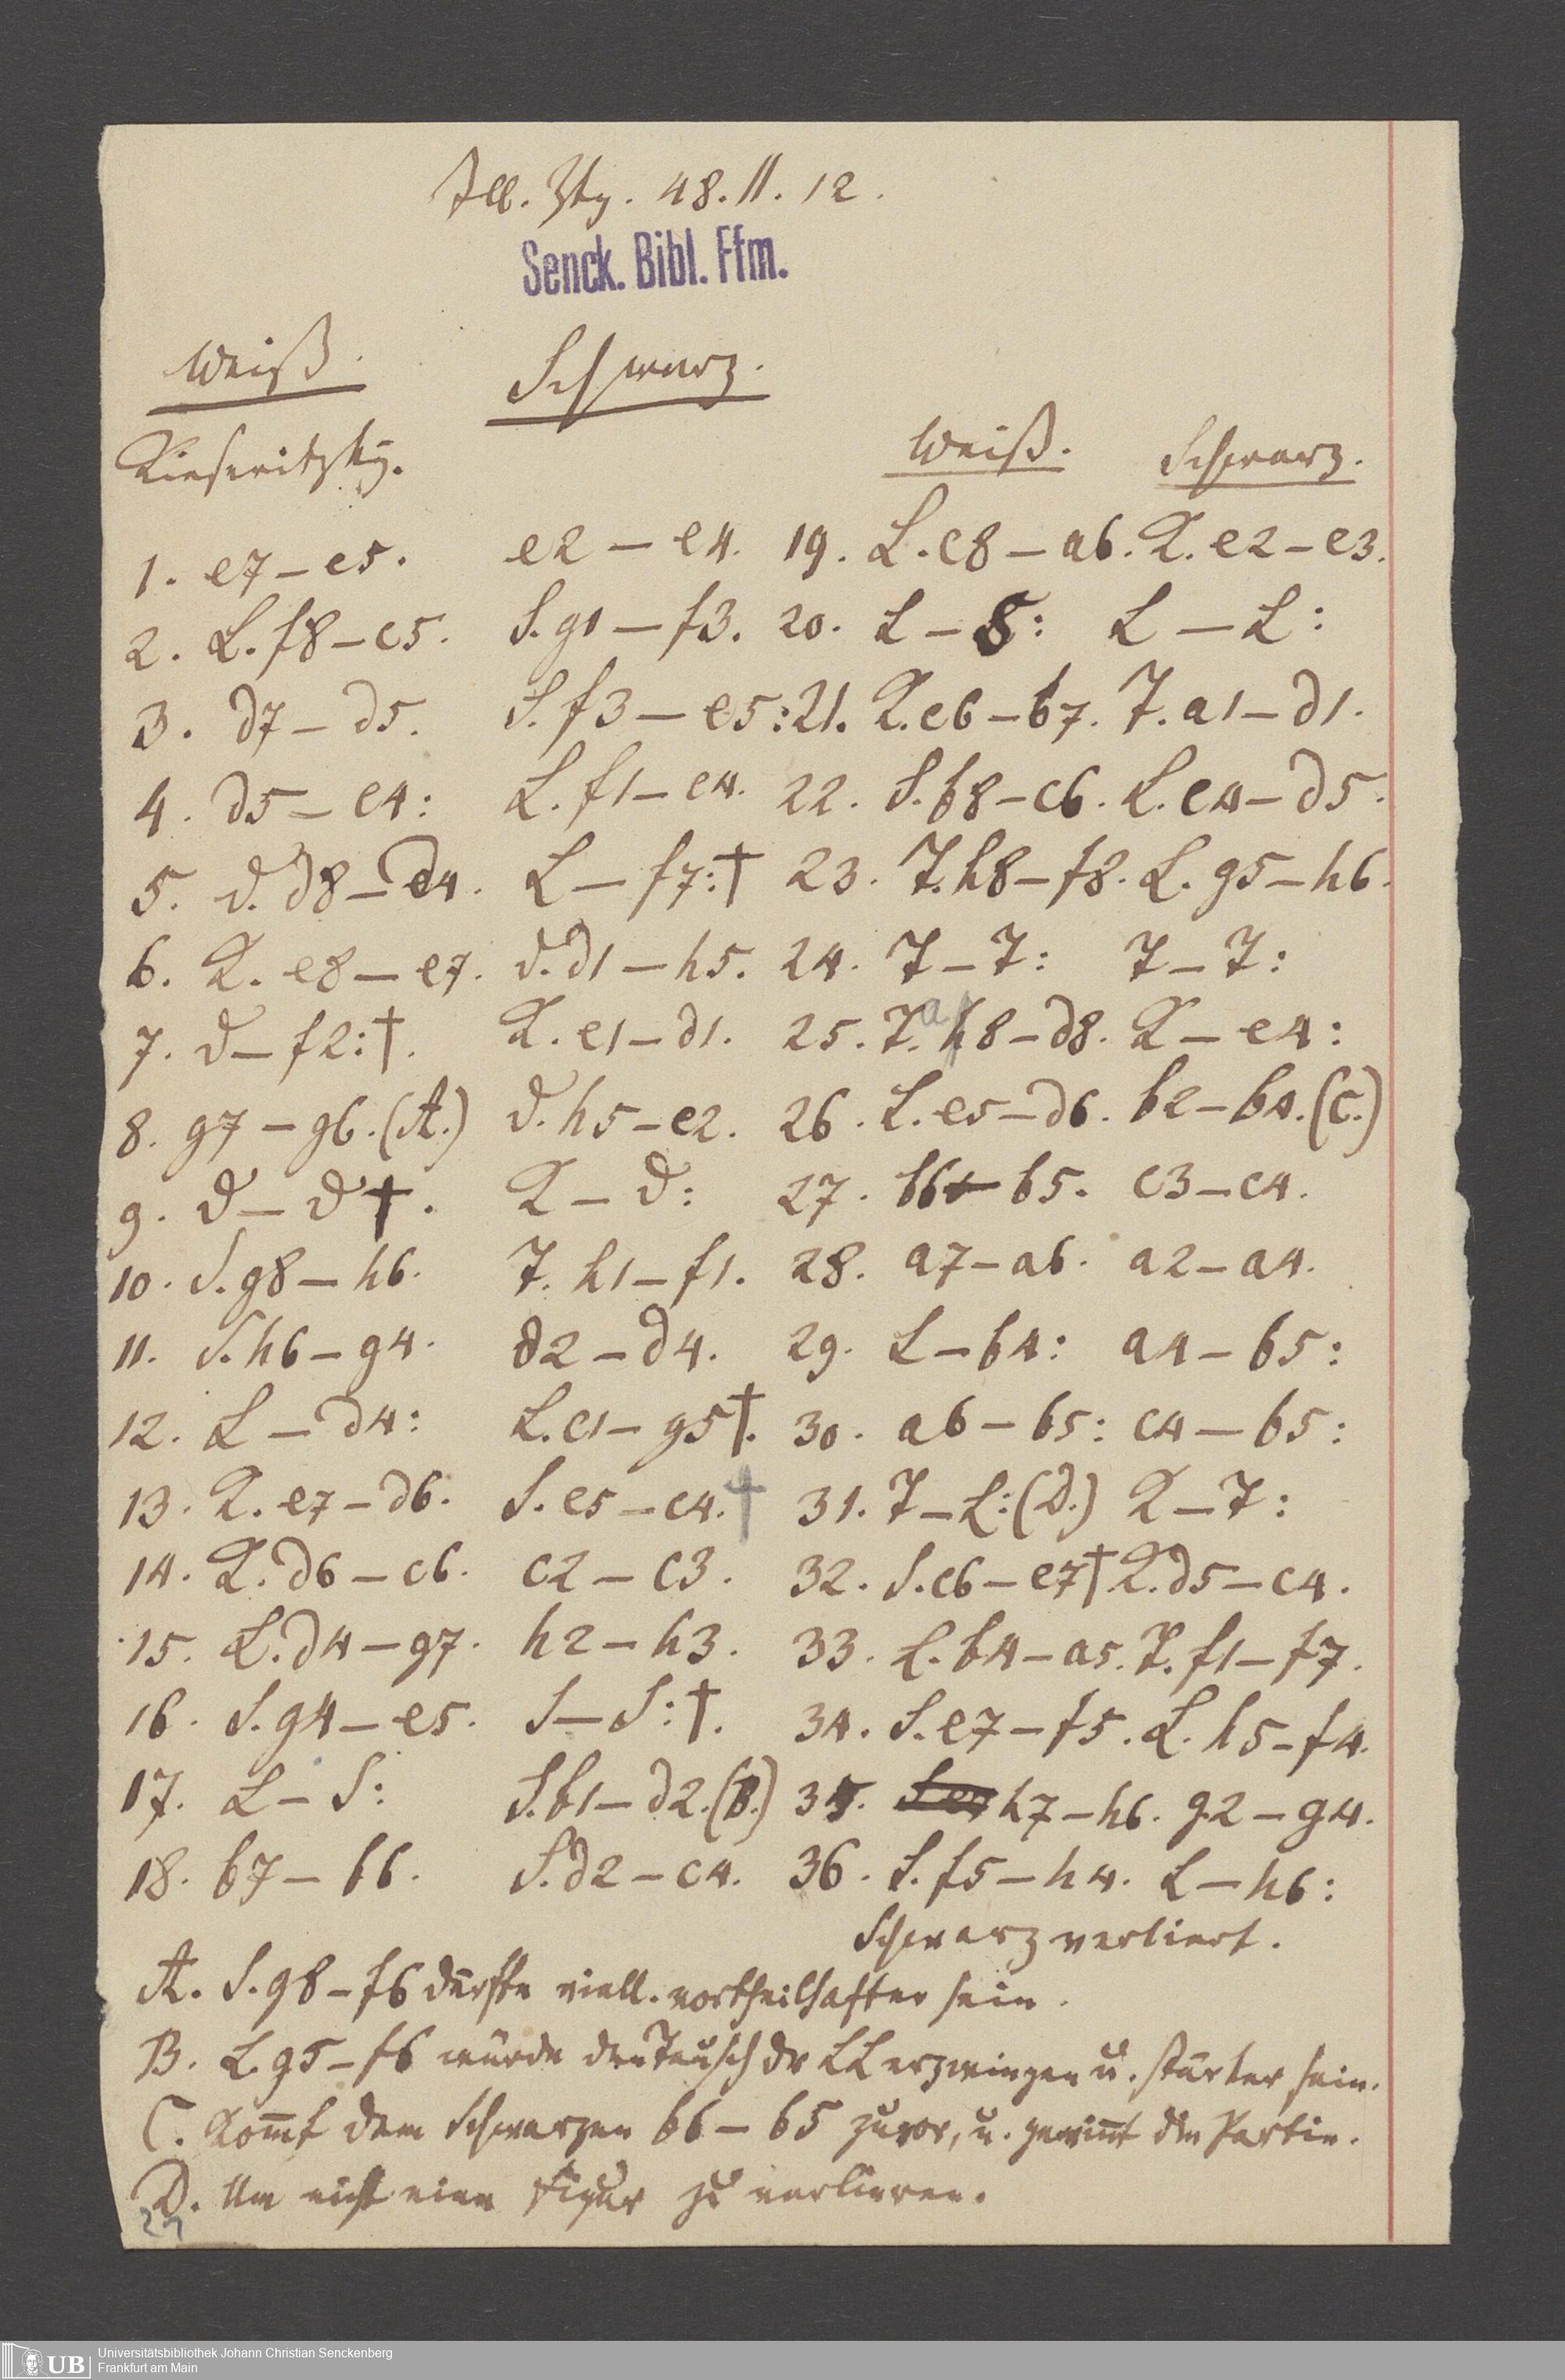 Ill. Ztg. 48. II. 12.
Senck. Bibl. Ffm.
Weiß. Schwarz.
Kieseritzky.
1. e7–e5. e2–e4.
2. L. f8–c5. S. g1–f3.
3. d7–d5. S. f3–e5:
4. d5–e4: L. f1–c4.
5. D. d8–d4. L–f7:†
6. K. e8–e7. D. d1–h5.
7. D–f2:†. K. e1–d1.
8. g7–g6. (A.) D. h5–e2.
9. D–D†. K–D:
10. S. g8–h6. T. h1–f1.
11. S. h6–g4. d2–d4.
12. L–d4: L. c1–g5†.
13. K. e7–d6. S. e5–c4.†
14. K. d6–c6. c2–c3.
15. L. d4–g7. h2–h3.
16. S. g4–e5. S–S:†.
17. L–S: S. b1–d2. (B.)
18. b7–b6. S. d2–c4.
Weiß. Schwarz.
19. L. c8–a6. K. e2–e3.
20. L–S: L–L:
21. K. c6–b7. T. a1–d1.
22. S. b8–c6. L. c4–d5.
23. T. h8–f8. L. g5–h6.
24. T–T: T–T:
25. T. a8–d8. K–e4:
26. L. e5–d6. b2–b4. (C.)
27. b6–b5. c3–c4.
28. a7–a6. a2–a4.
29. L–b4: a4–b5:
30. a6–b5: c4–b5:
31. T–L: (D.) K–T:
32. S. c6–e7†. K. d5–c4.
33. L. b4–a5. T. f1–f7.
34. S. e7–f5. L. h5–f4.
35. h7–h6. g2–g4.
36. S. f5–h4. L–h6:
Schwarz verliert.
A. S. g8–f6 dürfte viell. vortheilhafter sein.
B. L g5–f6 würde den Tausch der LL erzwingen u. stärker sein.
C. Kom̄t dem Schwarzen b6–b5 zuvor, u. gewin̄t die Partie.
D. Um nicht eine Figur zu verlieren.
UB
Universitätsbibliothek Johann Christian Senckenberg
Frankfurt am Main